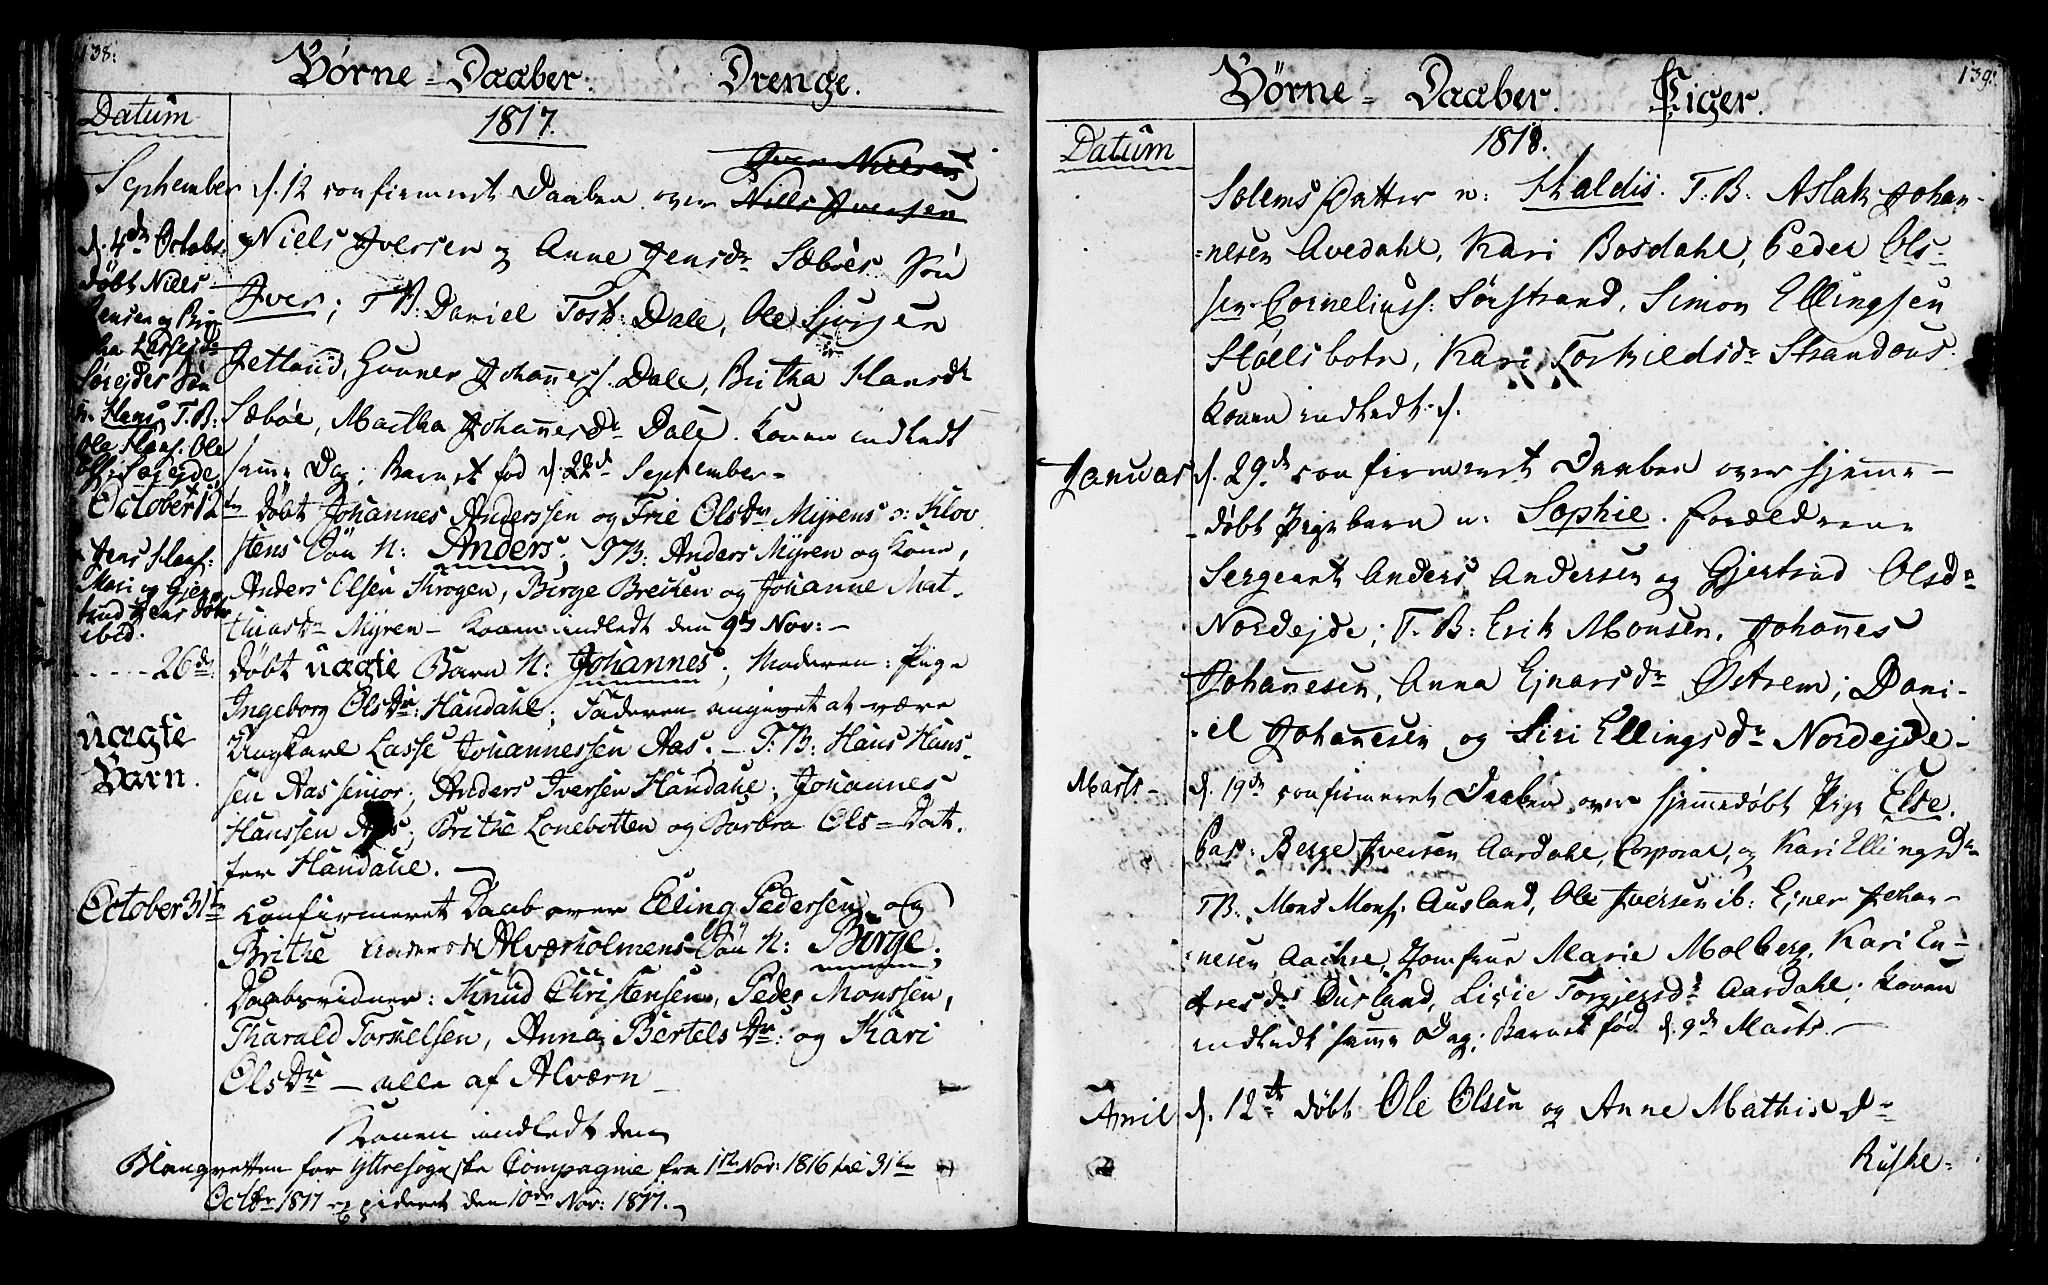 138.
Börne-Daaber. Drenge.
Datum
1817.
September d. 12 confirmeret Daaben over Iver Nielsen
Niels Iversen
Niels Iversen og Anne Jensdr Sæbøes Søn
Iver; T.B: Daniel Tost: Dale, Ole Sjursen
Jetlund, Gunner Johanness. Dale, Britha Hansdr
Sæbøe, Martha Johannesdr Dale. Konen indledt
samme Dag; Barnet fød d. 22d September-
d. 4de Octobr
döbt Niels
Jensen og Bri
tha Lassesdr
Sørejdes Søn
n. Hans T.B:
Ole Hans. Ole
Ols: Sørejde,
Jens Hans:
Mari og Gjer
trud Jens döttr
ibid.
October 12te döbt Johannes Anderssen og Trie Olsdtr Myrens o: Klov
stens Sön N: Anders; T.B: Anders Myren og Kone,
Anders Olsen Krogen, Börge Breiken og Johanne Mat-
thiasdr Myren- Konen indledt den 9de Nov:-
26de döbt uægte Barn N: Johannes; Moderen: Pige
Ingeborg Olsdtr: Haudahl; Faderen angivet at være
uægte
Barn.
Ungkarl Lasse Johannessen Aas. - T.B: Hans Hans-
sen Aas senior; Anders Iversen Haudahl; Johannes
Hanssen Aas; Brithe Lonebotten og Barbra Ols-Dat-
ter Haudahl. -
October 31te confirmeret Daab over Elling Pedersen og
Brithe Andersdr Alværholmens Sön N: Börge;
Daabsvidner: Knud Christensen, Peder Monssen,
Tharald Torkelsen, Anna Bertels Dtr: og Kari
Ols Dtr - alle af Alværn -
Konen indledt den
Blanqvetten for Yttresogniske Compagnie fra 1ste Nov: 1816 til 31te
Octbr 1817 expideret den 10de Nov: 1817.
139.
Börne-Daaber. Piger.
Datum
1818.
Solems Datter n: Haldis. T.B: Aslak Johan-
nesen Avedahl, Kari Bosdahl, Peder Ols-
sen Corneliuss: Sørstrand, Simon Ellingsen
Støllsbotn, Kari Torkildsdr Strandøns.
Konen indledt d.
Januar d. 29de confirmeret Daaben over hjemme-
döbt Pigebarn n: Sophie. Forældrene
Sergeant Anders Andersen og Gjertrud Olsdr
Nordejde; T.B: Erik Monsen, Johannes
Johannesen, Anna Ejnarsdr Østrem; Dani-
el Johannesen og Siri Ellingsdr Nordejde-
Marts- d. 19de confirmeret Daaben over hjemmedöbt Pige Else.
Par: Berge Iversen Aardahl, Corporal, og Kari Ellingsdr
T.B. Mons Mons. Ausland, Ole Iversen ib: Ejner Johan-
nesen Aachre, Jomfrue Marie Molberg, Kari En-
dresdr Ousland, Lisie Torgjersdr Aardahl; Konen
indledt samme Dag; Barnet fød d. 9de Marts.-
April d. 12te döbt Ole Olsen og Anne Mathisdr
Kuske-